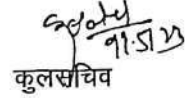 11.5.23
कुलसचिव